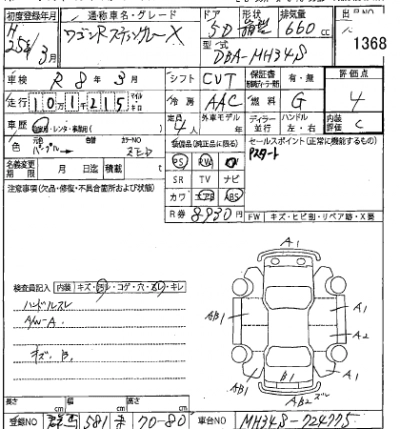 初度登録年月 通称車名・グレード ドア 形状 排気量 出品NO
H 25年 3月 ワゴンRスティングレー X 5D 箱型 660 cc 1368
型式 DBA-MH34S
車検 R 8年 3月 シフト CVT 保証書 有・無 評価点
走行 101,215 マイル キロ 冷房 AAC 燃料 G 4
車歴 自家用・レンタ・事業用( ) 定員 4人 外車モデル 年 ディーラー 並行 ハンドル 左・右 内装評価 C
色 元色 パープル 色替 カラーNO ZED 装備品(純正品に限る) セールスポイント(正常に機能するもの)
PS PW Pスタート
名義変更期限 月 日迄 積載 t SR TV ナビ
注意事項(欠品・修復・不具合箇所および状態) カワ エアB ABS
R券 8930円 FW キズ・ヒビ割・リペア跡・X要
A1
検査員記入 内装 キズ・汚レ・コゲ・穴・スレ・キレ
ハンドルスレ AB1 A1
A/W-A. A2
キズ. 有. AB1 B1 A1
AB2 ズレ
長さ cm 幅 cm 高さ cm
登録NO 群馬 581 す 70-80 車台NO MH34S-724775